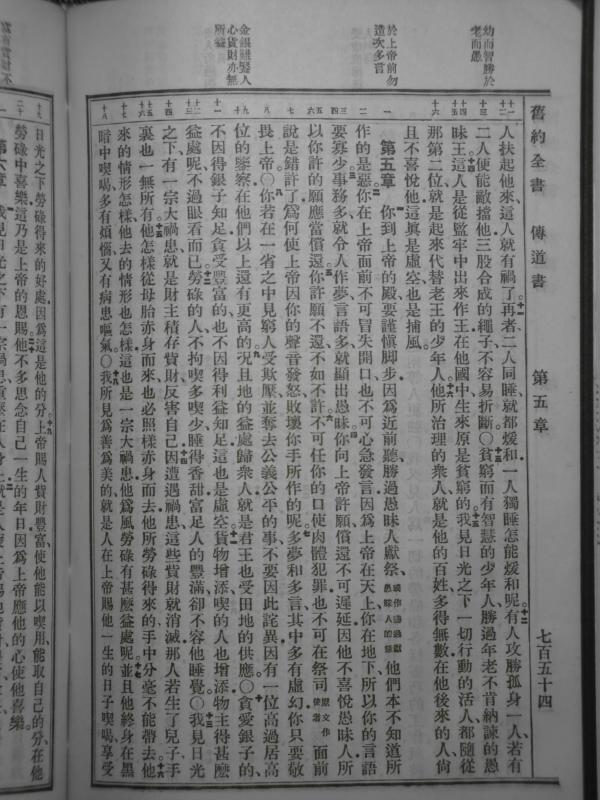 舊約全書　傳道書　第五章　七百五十四
幼而智勝於
老而愚
於上帝前勿
造次多言
金銀雖豎人
心貨財亦無
所益
人扶起他來這人就有禍了再者二人同睡就都煖和一人獨睡怎能煖和呢有人攻勝孤身一人若有
二人便能敵擋他三股合成的繩子不容易折斷〇貧窮而有智慧的少年人勝過年老不肯納諫的愚
昧王這人是從監牢中出來作王在他國中生來原是貧窮的我見日光之下一切行動的活人都隨從
那第二位就是起來代替老王的少年人他所治理的衆人就是他的百姓多得無數在他後來的人尙
且不喜悅他這眞是虛空也是捕風
第五章　你到上帝的殿要謹愼腳步因爲近前聽勝過愚昧人獻祭他們本不知道所
作的是惡你在上帝面前不可冒失開口也不可心急發言因爲上帝在天上你在地下所以你的言語
要寡少事務多就令人作夢言語多就顯出愚昧你向上帝許願償還不可遲延因他不喜悅愚昧人所
以你許的願應當償還你許願不還不如不許不可任你的口使肉體犯罪也不可在祭司原文作使者面前
說是錯許了爲何使上帝因你的聲音發怒敗壞你手所作的呢多夢和多言其中多有虛幻你只要敬
畏上帝〇你若在一省之中見窮人受欺壓並奪去公義公平的事不要因此詫異因有一位高過居高
位的鑒察在他們以上還有更高的況且地的益處歸衆人就是君王也受田地的供應〇貪愛銀子的
不因得銀子知足貪愛豐富的也不因得利益知足這也是虛空貨物增添喫的人也增添物主得甚麽
益處呢不過眼看而已勞碌的人不拘喫多喫少睡得香甜富足人的豐滿卻不容他睡覺〇我見日光
之下有一宗大禍患就是財主積存貲財反害自己因遭遇禍患這些貲財就消滅那人若生了兒子手
裏也一無所有他怎樣從母胎赤身而來也必照樣赤身而去他所勞碌得來的手中分毫不能帶去他
來的情形怎樣他去的情形也怎樣這也是一宗大禍患他爲風勞碌有甚麽益處呢並且他終身在黑
暗中喫喝多有煩惱又有病患嘔氣〇我所見爲善爲美的就是人在上帝賜他一生的日子喫喝享受
日光之下勞碌得來的好處因爲這是他的分上帝賜人貲財豐富使他能以喫用能取自己的分在他
勞碌中喜樂這乃是上帝的恩賜他不多思念自己一生的年日因爲上帝應他的心使他喜樂
第六章